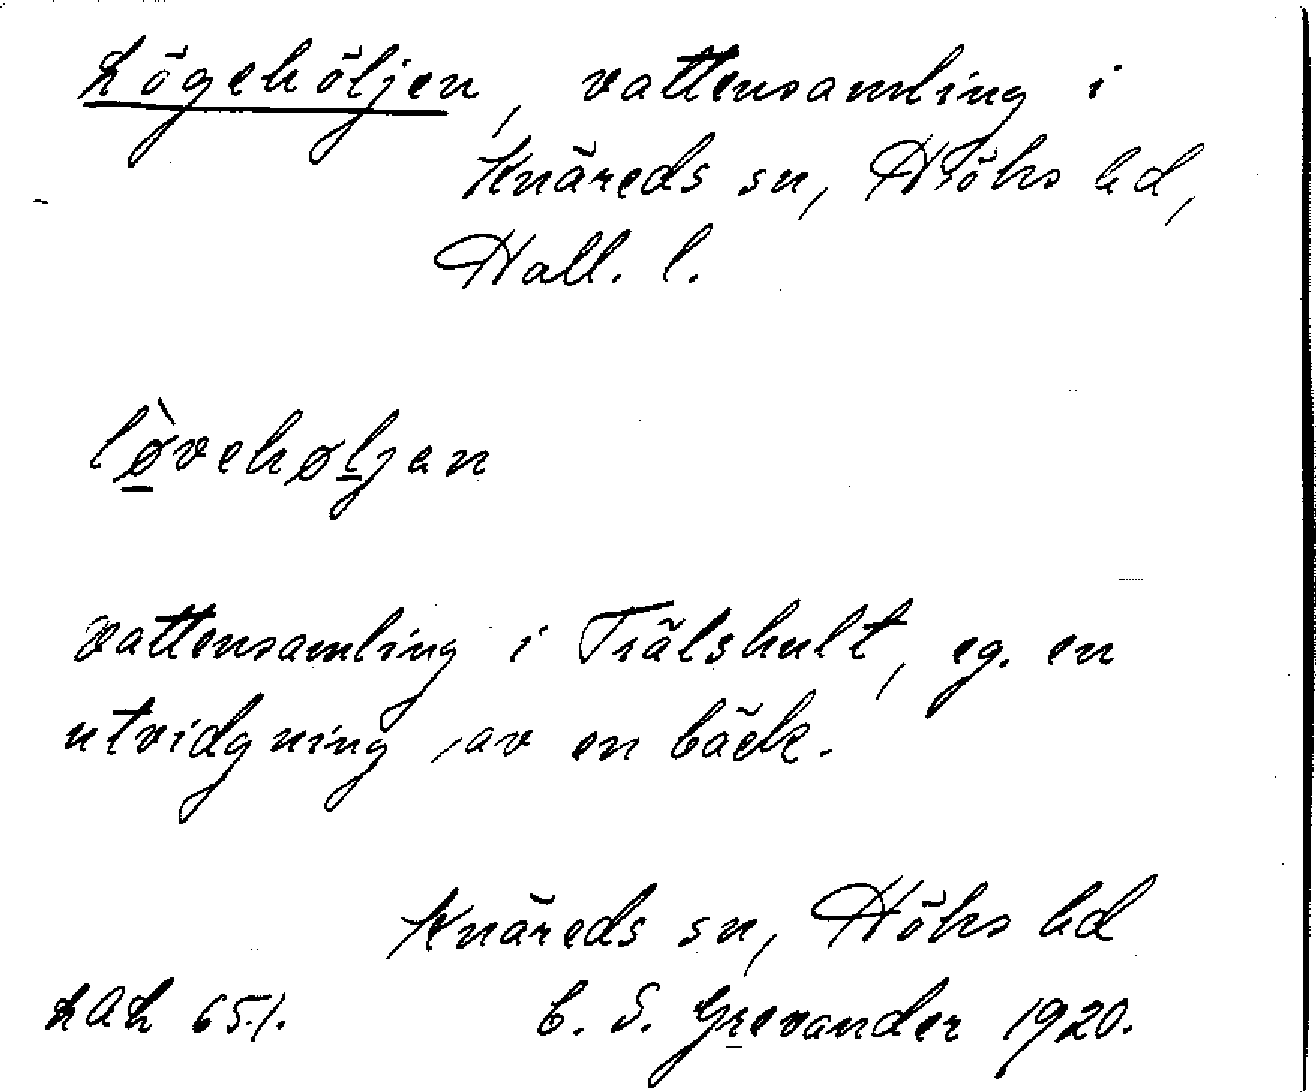 Lögehöljen, vattensamling i
Knäreds sn, Höks hd,
Hall. l.
lø̀vehøljan
Vattensamling i Trälshult, eg. en
utvidgning av en bäck.
Knäreds sn, Höks hd
LAL 651. C. S. Grevander 1920.